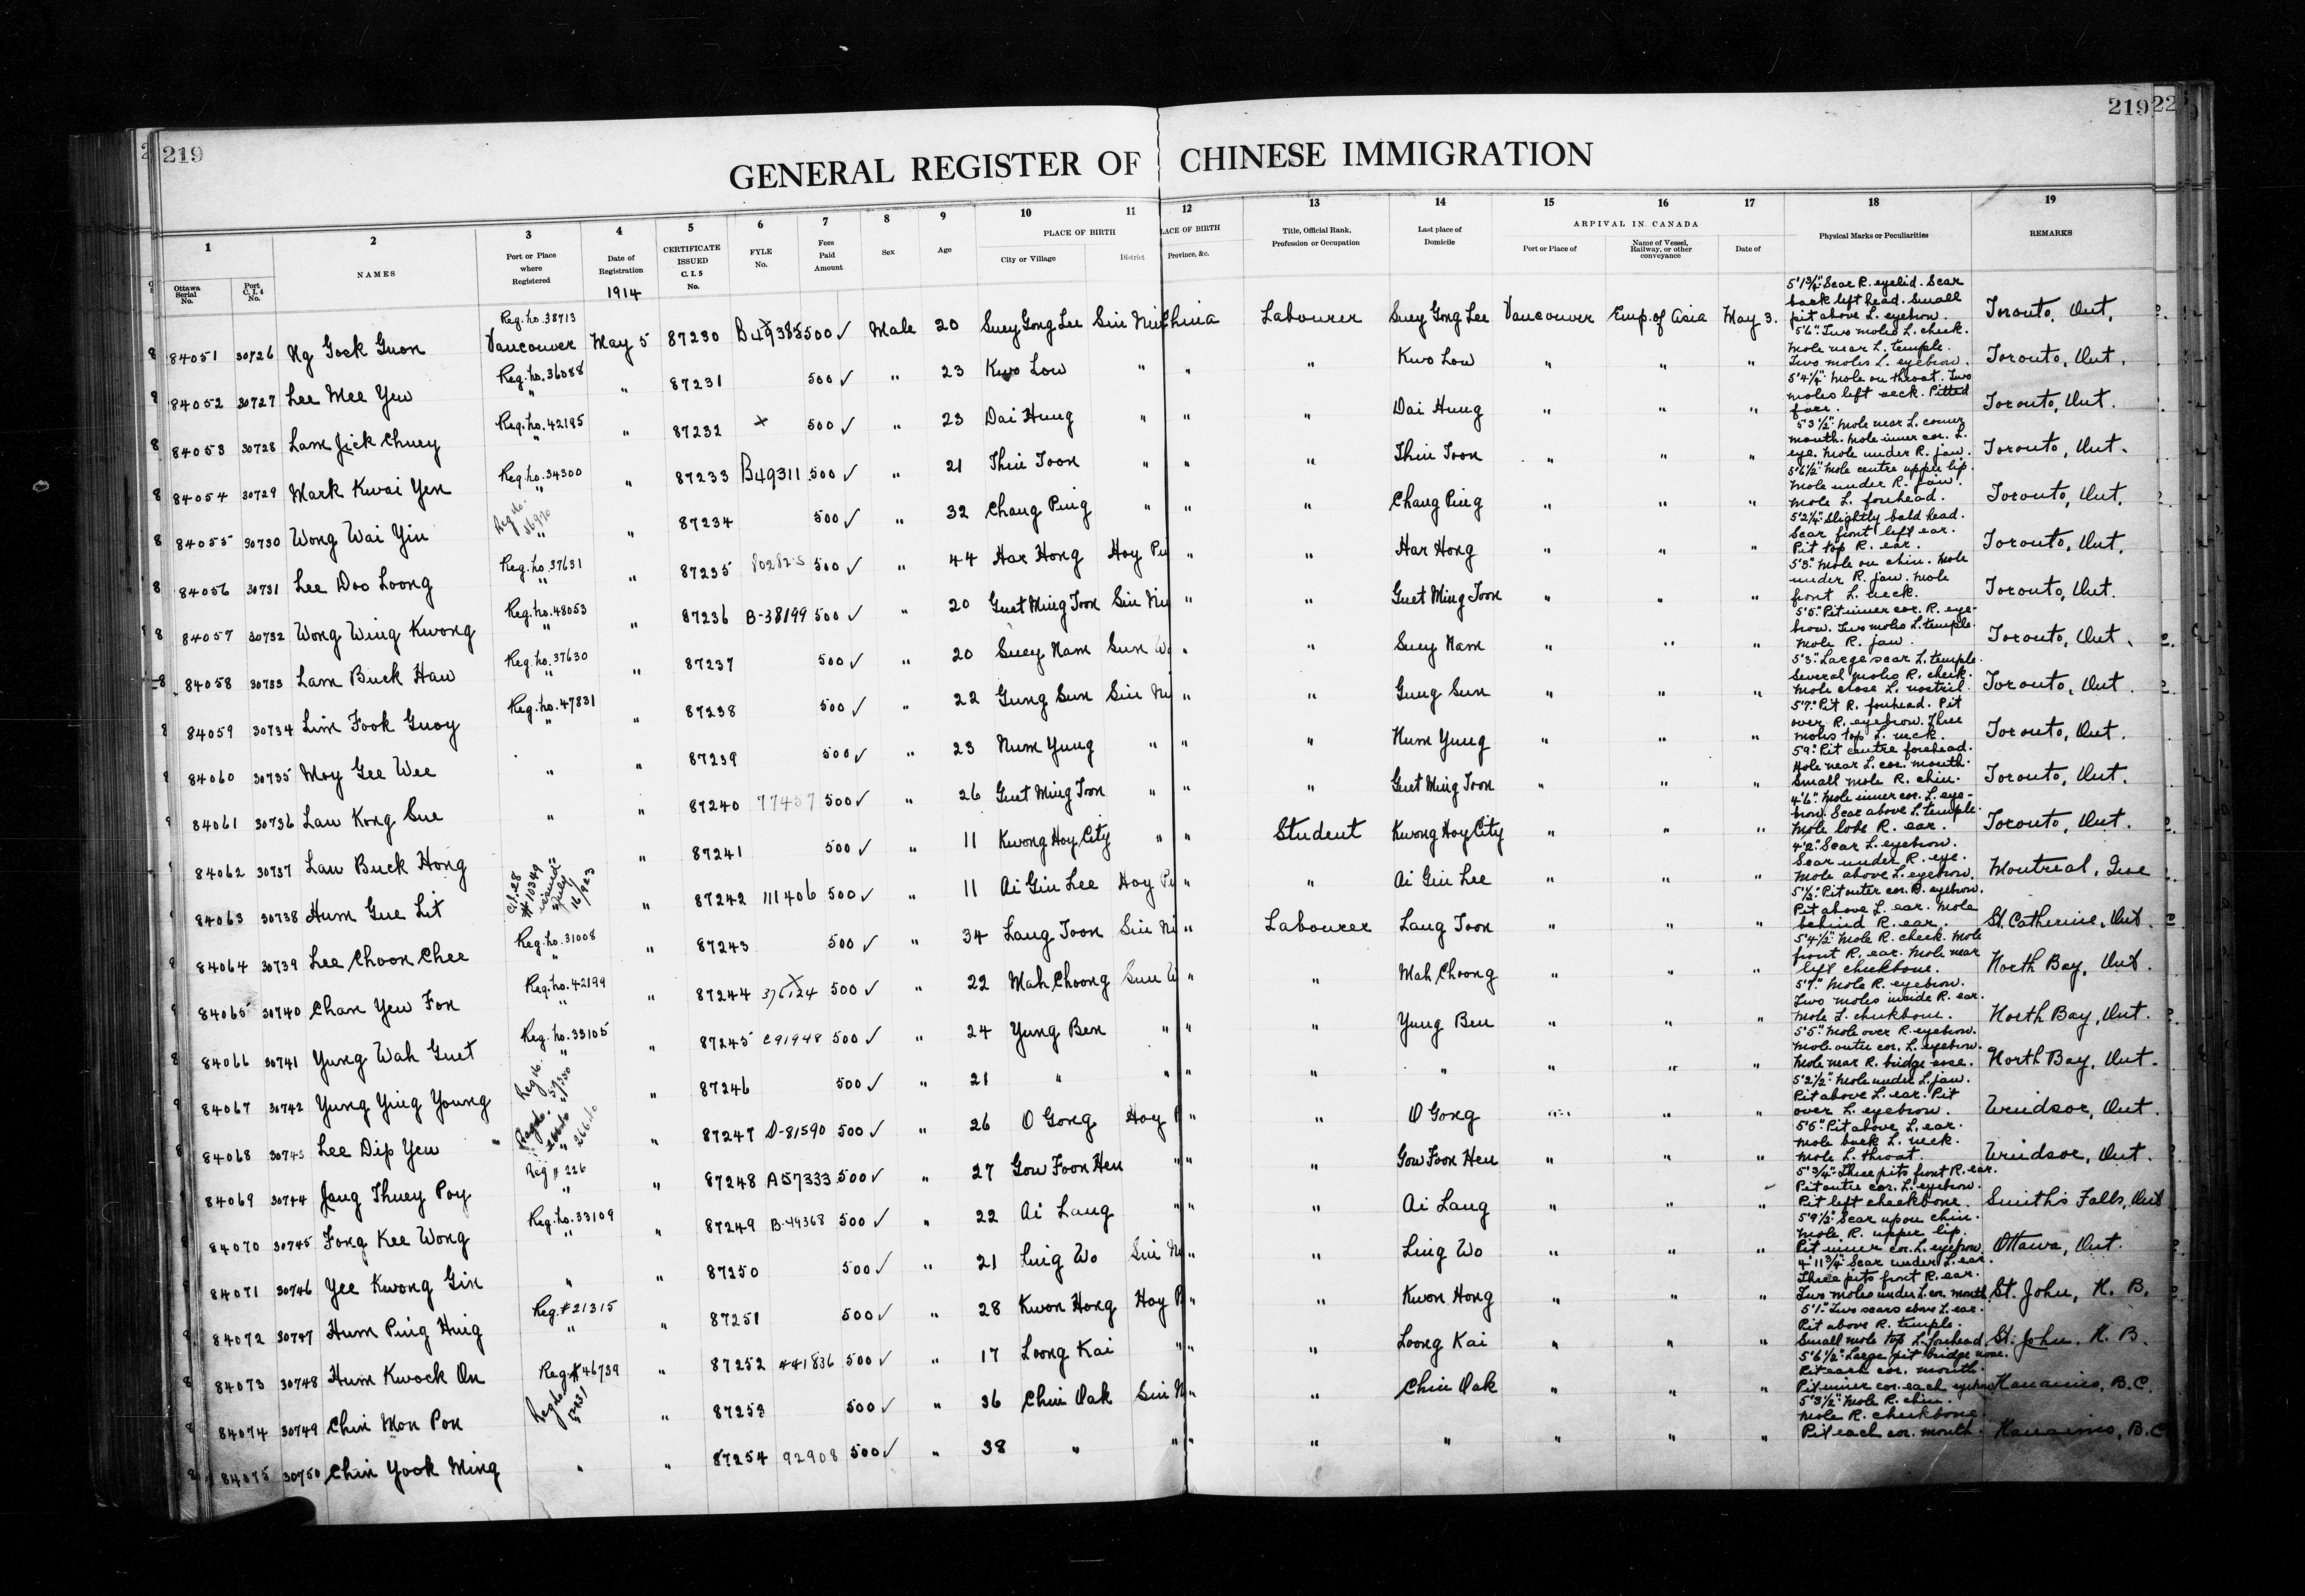 219
219
22
GENERAL REGISTER OF CHINESE IMMIGRATION
1 2 3 4 5 6 7 8 9 10 11 12 13 14 15 16 17 18 19
Ottawa Serial No. Port C. I. 4 No. NAMES Port or Place where Registered Date of Registration CERTIFICATE ISSUED C. I. 5 No. FYLE No. Fees Paid Amount Sex Age PLACE OF BIRTH City or Village District PLACE OF BIRTH Province, &c. Title, Official Rank, Profession or Occupation Last place of Domicile ARRIVAL IN CANADA Port or Place of Name of Vessel, Railway, or other conveyance Date of Physical Marks or Peculiarities REMARKS
1914
84051 30726 Ng Gock Guon Reg. no. 38713 Vancouver May 5 87230 500 ✓ Male 20 Suey Gong Lee Sin Nin China Labourer Suey Gong Lee Vancouver Emp. of Asia May 3. 5'1¾" Scar R. eyelid. Scar back left head. Small pit above L. eyebrow. Toronto, Ont.
84052 30727 Lee Mee Yew Reg. no. 36088 " " 87231 500 ✓ " 23 Kwo Low " " " Kwo Low " " " 5'6". Two moles L. cheek. Mole near L. temple. Two moles L. eyebrow. Toronto, Ont.
84053 30728 Lam Jick Chuey Reg. no. 42195 " " 87232 x 500 ✓ " 23 Dai Hung " " " Dai Hung " " " 5'4¼" Mole on throat. Two moles left neck. Pitted face. Toronto, Ont.
84054 30729 Mark Kwai Yen Reg. no. 34300 " " 87233 B49311 500 ✓ " 21 Thin Toon " " " Thin Toon " " " 5'3½" Mole near L. corner mouth. Mole inner cor. L. eye. Mole under R. jaw. Toronto, Ont.
84055 30730 Wong Wai Yin Reg. no. " " 87234 500 ✓ " 32 Chang Ping " " " Chang Ping " " " 5'6½" Mole centre upper lip. Mole under R. jaw. Mole L. forehead. Toronto, Ont.
84056 30731 Lee Doo Loong Reg. no. 37631 " " 87235 500 ✓ " 44 Har Hong Hoy Pi " " Har Hong " " " 5'2¼" Slightly bald head. Scar front left ear. Pit top R. ear. Toronto, Ont.
84057 30732 Wong Wing Kwong Reg. no. 48053 " " 87236 B-38199 500 ✓ " 20 Guet Ming Toon Sin Ni " " Guet Ming Toon " " " 5'3" Mole on chin. Mole under R. jaw. Mole front L. neck. Toronto, Ont.
84058 30733 Lam Buck Haw Reg. no. 37630 " " 87237 500 ✓ " 20 Suey Nam Sun Wo " " Suey Nam " " " 5'5" Pit inner cor. R. eyebrow. Two moles L. temple. Mole R. jaw. Toronto, Ont.
84059 30734 Lim Fook Guoy Reg. no. 47831 " " 87238 500 ✓ " 22 Gung Sun Sin Ni " " Gung Sun " " " 5'3" Large scar L. temple. Several moles R. cheek. Mole close L. nostril. Toronto, Ont.
84060 30735 Moy Gee Wee " " 87239 500 ✓ " 23 Num Yung " " " Num Yung " " " 5'7" Pit R. forehead. Pit over R. eyebrow. Three moles top L. neck. Toronto, Ont.
84061 30736 Lau Kong Sue " " 87240 77457 500 ✓ " 26 Guet Ming Toon " " " Guet Ming Toon " " " 5'9" Pit centre forehead. Hole near L. cor. mouth. Small mole R. chin. Toronto, Ont.
84062 30737 Lau Buck Hong " 87241 500 ✓ " 11 Kwong Hoy City " " Student Kwong Hoy City " " " 4'6" Mole inner cor. L. eyebrow. Scar above L. temple. Mole lobe R. ear. Toronto, Ont.
84063 30738 Hum Gue Lit C.I. 28 #10349 issued July 16/923 " 87242 111406 500 ✓ " 11 Ai Gin Lee Hoy Pi " " Ai Gin Lee " " " 4'2" Scar L. eyebrow. Scar under R. eye. Mole above L. eyebrow. Montreal, Que
84064 30739 Lee Choon Chee Reg. no. 31008 " " 87243 500 ✓ " 34 Lang Toon Sin Ni " Labourer Lang Toon " " " 5'½" Pit outer cor. R. eyebrow. Pit above L. ear. Mole behind R. ear. St. Catherine, Ont.
84065 30740 Chan Yew Fon Reg. no. 42199 " " 87244 376124 500 ✓ " 22 Mah Choong Sun W " " Mah Choong " " " 5'4½" Mole R. cheek. Mole front R. ear. Mole near left cheekbone. North Bay, Ont.
84066 30741 Yung Wah Guet Reg. no. 33105 " " 87245 C91948 500 ✓ " 24 Yung Ben " " " Yung Ben " " " 5'7" Mole R. eyebrow. Two moles inside R. ear. Mole L. cheekbone. North Bay, Ont.
84067 30742 Yung Ying Young Reg. no. " " 87246 500 ✓ " 21 " " " " " " " " 5'5" Mole over R. eyebrow. Mole outer cor. L. eyebrow. Mole near R. bridge nose. North Bay, Ont.
84068 30743 Lee Dip Yew " " 87247 D-81590 500 ✓ " 26 O Gong Hoy P " " O Gong " " " 5'2½" Mole under L. jaw. Pit above L. ear. Pit over L. eyebrow. Windsor, Ont.
84069 30744 Jang Thuey Poy Reg # 226 " " 87248 A57333 500 ✓ " 27 Gow Foon Hen " " " Gow Foon Hen " " " 5'5" Pit above L. ear. Mole back L. neck. Mole L. throat. Windsor, Ont.
84070 30745 Fong Kee Wong Reg. no. 33109 " " 87249 B-49368 500 ✓ " 22 Ai Lang " " " Ai Lang " " " 5'¾" Three pits front R. ear. Pit outer cor. L. eyebrow. Pit left cheekbone. Smith's Falls, Ont
84071 30746 Yee Kwong Gin " " 87250 500 ✓ " 21 Ling Wo Sin Ni " " Ling Wo " " " Scar upon chin. Mole R. upper lip. Pit inner cor. L. eyebrow. Ottawa, Ont.
84072 30747 Hum Ping Hing Reg. #21315 " " 87251 500 ✓ " 28 Kwon Hong Hoy P " " Kwon Hong " " " 4'11¾" Scar under L. ear. Three pits front R. ear. Two moles under L. cor. mouth. St. John, N. B.
84073 30748 Hum Kwock On Reg. #46739 " 87252 441836 500 ✓ " 17 Loong Kai " " " Loong Kai " " " 5'1" Two scars above L. ear. Pit above R. temple. Small mole top L. forehead. St. John. N. B.
84074 30749 Chin Mon Pon Reg. no. " 87253 500 ✓ " 36 Chin Oak Sin N " " Chin Oak " " " 5'6½" Large pit bridge nose. Pit each cor. mouth. Pit inner cor. each eyebrow. Nanaimo, B.C.
84075 30750 Chin Yook Ming " " 87254 92908 500 ✓ " 38 " " " " " " " " 5'3½" Mole R. chin. Mole R. cheekbone. Pit each cor. mouth. Nanaimo, B.C